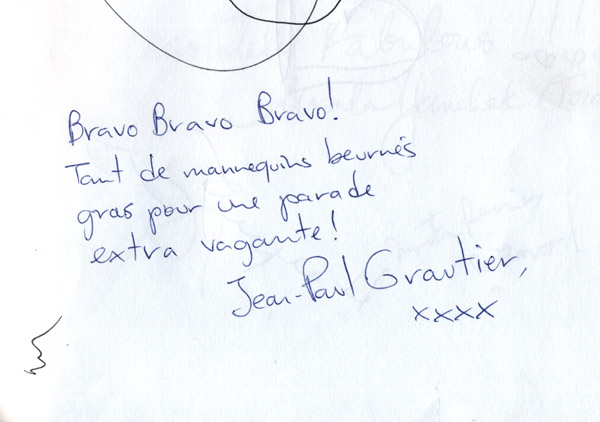 Bravo Bravo Bravo!
Tant de mannequins beurnés
gras pour une parade
extra vagante!
Jean-Paul Grautier,
xxxx
Fabulous